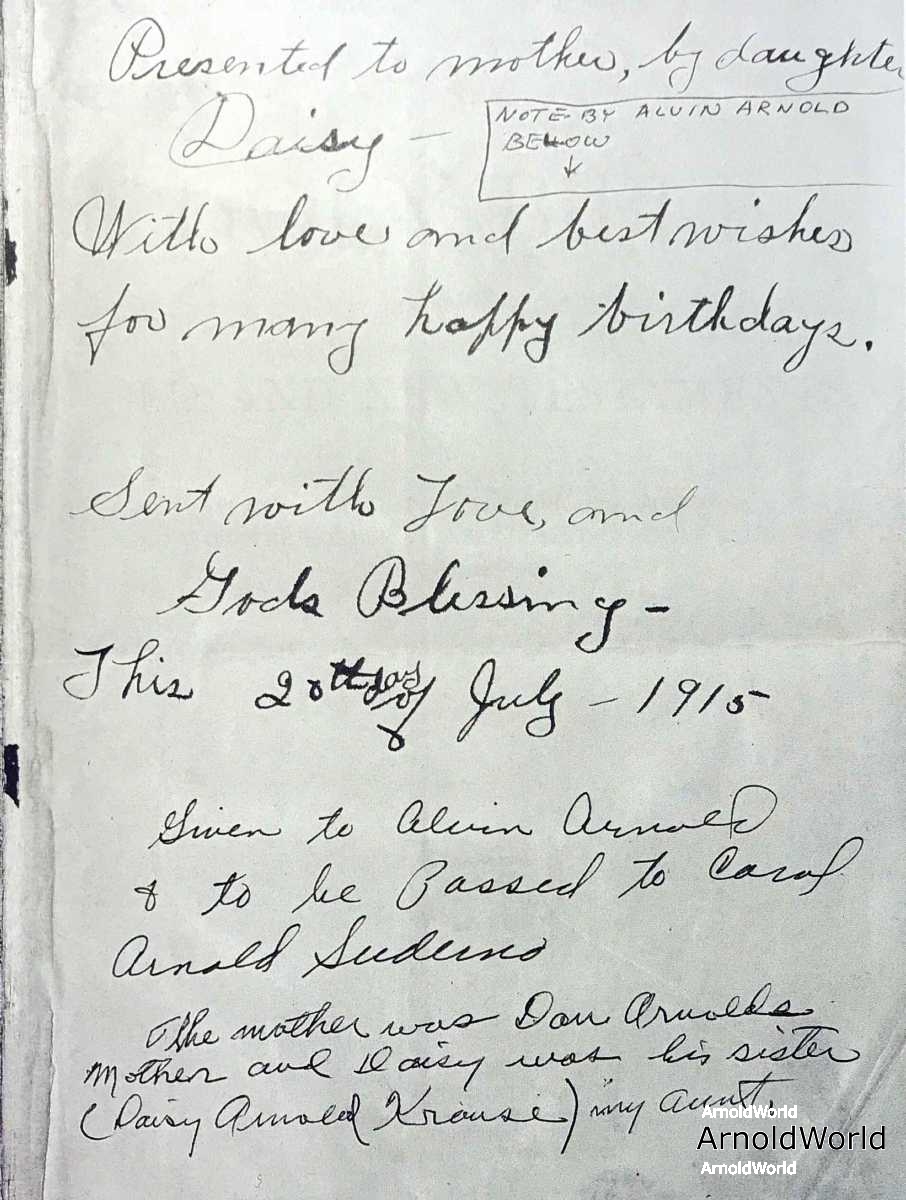 Presented to mother, by daughter
Daisy —
NOTE BY ALVIN ARNOLD
BELOW
↓
With love and best wishes
for many happy birthdays.
Sent with Love, and
Gods Blessing —
This 20th day of July — 1915
Given to Alvin Arnold
& to be Passed to Carol
Arnold
The mother was Dan Arnolds
Mother and Daisy was his sister
(Daisy Arnold Krause) my aunt.
ArnoldWorld
ArnoldWorld
ArnoldWorld